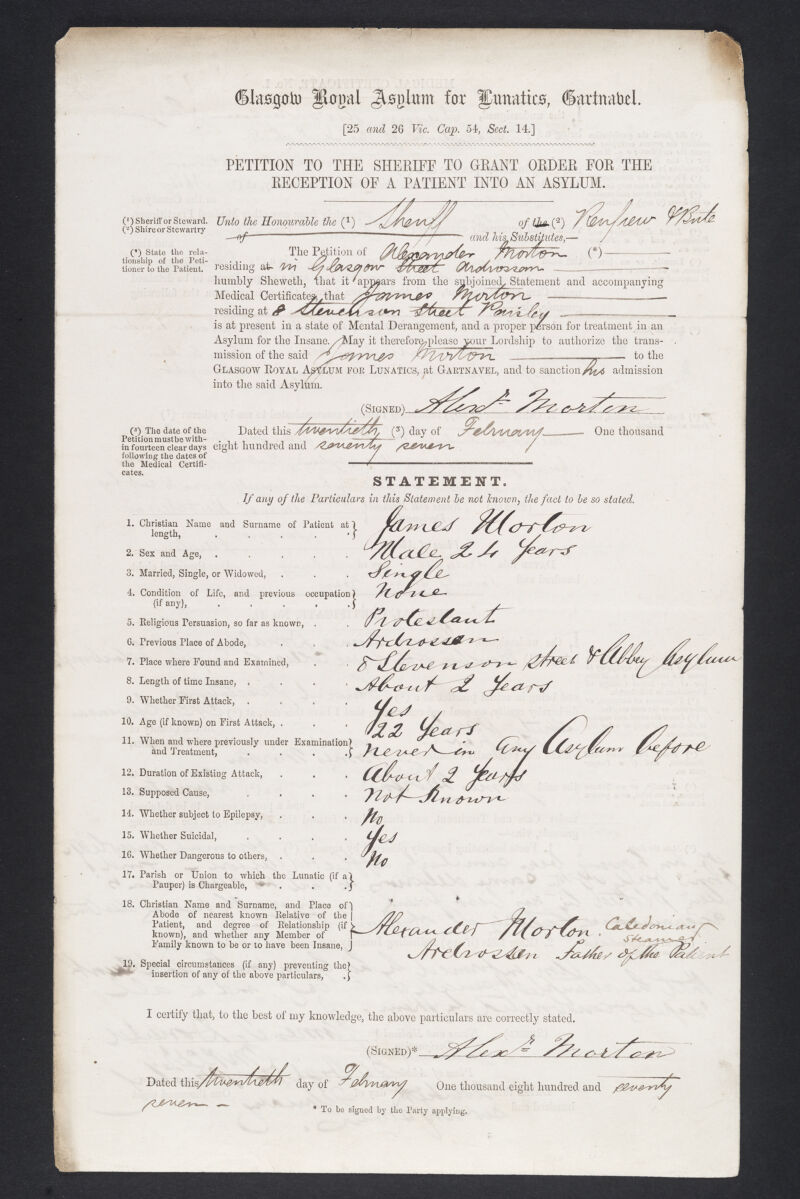 Glasgow Royal Asylum for Lunatics, Gartnavel.
[25 and 26 Vic. Cap. 54, Sect. 14.]
PETITION TO THE SHERIFF TO GRANT ORDER FOR THE
RECEPTION OF A PATIENT INTO AN ASYLUM.
(¹) Sheriff or Steward.
(²) Shire or Stewartry
Unto the Honourable the (¹) Sheriff of the (²) Renfrew & Bute
of and his Substitutes,—
(*) State the rela-
tionship of the Peti-
tioner to the Patient.
The Petition of Alexander Morton (*)
residing at in Glasgow Street Ardrossan
humbly Sheweth, that it appears from the subjoined Statement and accompanying
Medical Certificates, that James Morton
residing at 8 Stevenson Street Paisley
is at present in a state of Mental Derangement, and a proper person for treatment in an
Asylum for the Insane. May it therefore please your Lordship to authorize the trans-
mission of the said James Morton to the
GLASGOW ROYAL ASYLUM FOR LUNATICS, at GARTNAVEL, and to sanction his admission
into the said Asylum.
(SIGNED) Alexr Morton
(³) The date of the
Petition must be with-
in fourteen clear days
following the dates of
the Medical Certifi-
cates.
Dated this twentieth (³) day of February One thousand
eight hundred and seventy seven
STATEMENT.
If any of the Particulars in this Statement be not known, the fact to be so stated.
1. Christian Name and Surname of Patient at length, James Morton
2. Sex and Age, Male 24 Years
3. Married, Single, or Widowed, Single
4. Condition of Life, and previous occupation (if any), None
5. Religious Persuasion, so far as known, Protestant
6. Previous Place of Abode, Ardrossan
7. Place where Found and Examined, 8 Stevenson Street & Abbey Asylum
8. Length of time Insane, About 2 Years
9. Whether First Attack, Yes
10. Age (if known) on First Attack, 22 Years
11. When and where previously under Examination and Treatment, never in any Asylum before
12. Duration of Existing Attack, About 2 Years
13. Supposed Cause, Not Known
14. Whether subject to Epilepsy, No
15. Whether Suicidal, Yes
16. Whether Dangerous to others, No
17. Parish or Union to which the Lunatic (if a
Pauper) is Chargeable,
18. Christian Name and Surname, and Place of
Abode of nearest known Relative of the
Patient, and degree of Relationship (if
known), and whether any Member of
Family known to be or to have been Insane,
Alexander Morton. Caledonian
Steamer
Ardrossan Father of the Patient
19. Special circumstances (if any) preventing the
insertion of any of the above particulars,
I certify that, to the best of my knowledge, the above particulars are correctly stated.
(SIGNED)* Alexr Morton
Dated this twentieth day of February One thousand eight hundred and seventy
seven
* To be signed by the Party applying.